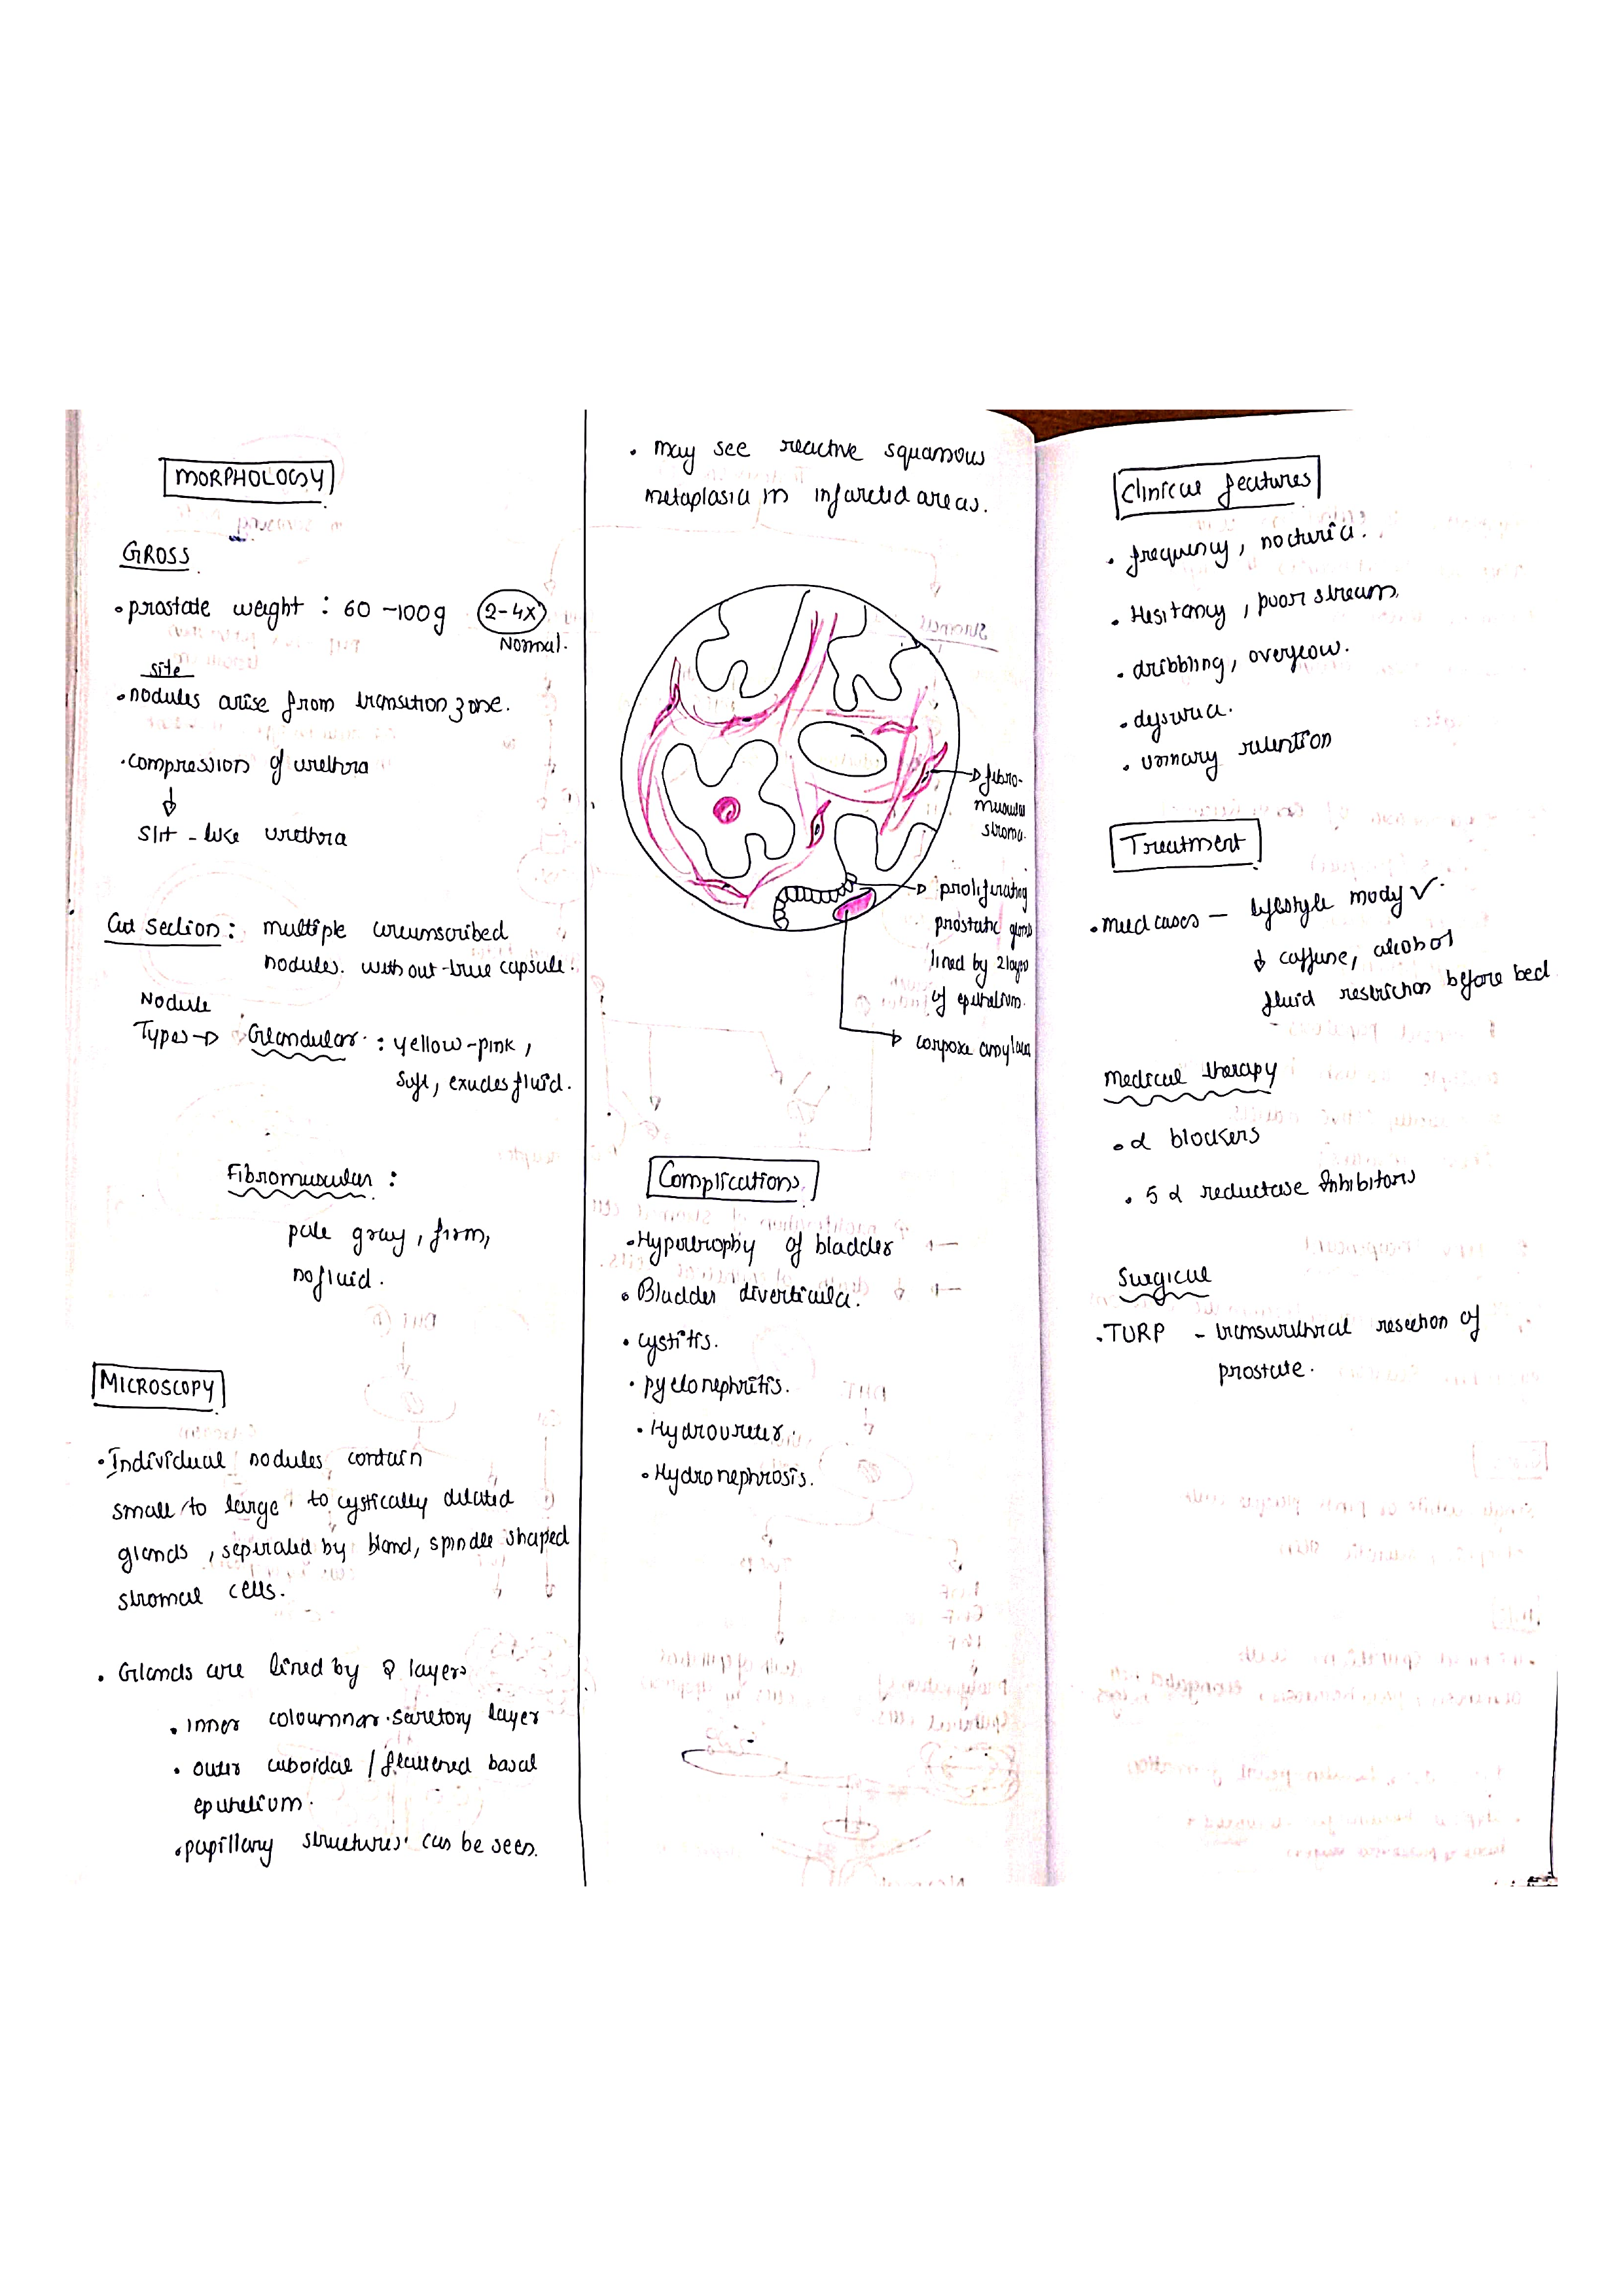 MORPHOLOGY
GROSS
• prostate weight : 60 -100g 2-4x
Normal.
site
• nodules arise from transition zone.
• compression of urethra
↓
Slit - like urethra
Cut Section : multiple circumscribed
nodules. without true capsule.
Nodule
Types → Glandular : yellow-pink,
soft, exudes fluid.
Fibromuscular :
pale gray, firm,
no fluid.
MICROSCOPY
• Individual nodules contain
small to large to cystically dilated
glands, seperated by bland, spindle shaped
stromal cells.
• Glands are lined by 2 layers
• inner coloumnar secretory layer
• outer cuboidal / flattened basal
epithelium.
• papillary structures can be seen.
• may see reactive squamous
metaplasia in infarcted areas.
→ fibro-
muscular
stroma.
→ proliferating
prostatic gland
lined by 2 layers
of epithelium.
→ corpora amylacea
Complications
• Hypertrophy of bladder
• Bladder diverticula.
• cystitis.
• pyelonephritis.
• Hydroureter.
• Hydronephrosis.
Clinical features
• frequency, nocturia.
• Hesitancy, poor stream.
• dribbling, overflow.
• dysuria.
• urinary retention
Treatment
• mild cases - lifestyle mody ✓.
↓ caffeine, alcohol
fluid restriction before bed
Medical therapy
• α blockers
• 5 α reductase inhibitors
Surgical
• TURP - transurethral resection of
prostate.